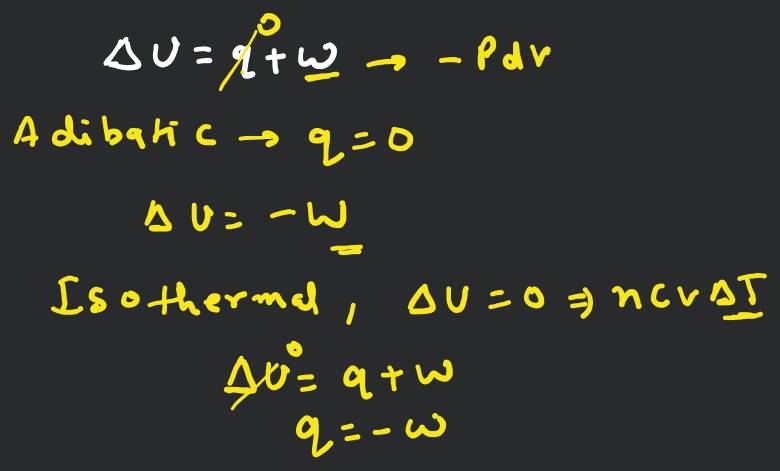 ΔU = q⁰ + w → - Pdv
Adibatic → q = 0
ΔU = - W
Isothermal, ΔU = 0 ⇒ nCvΔT
ΔU⁰ = q + w
q = - w